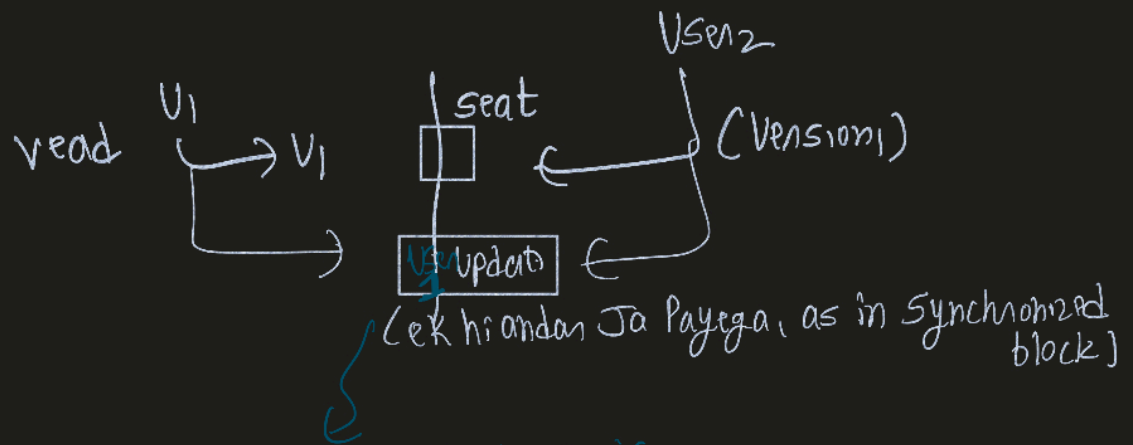 User2
U1
seat
read
V1
(Version1)
User 1 update
(ek hi andar Ja Payega, as in synchronized
block)